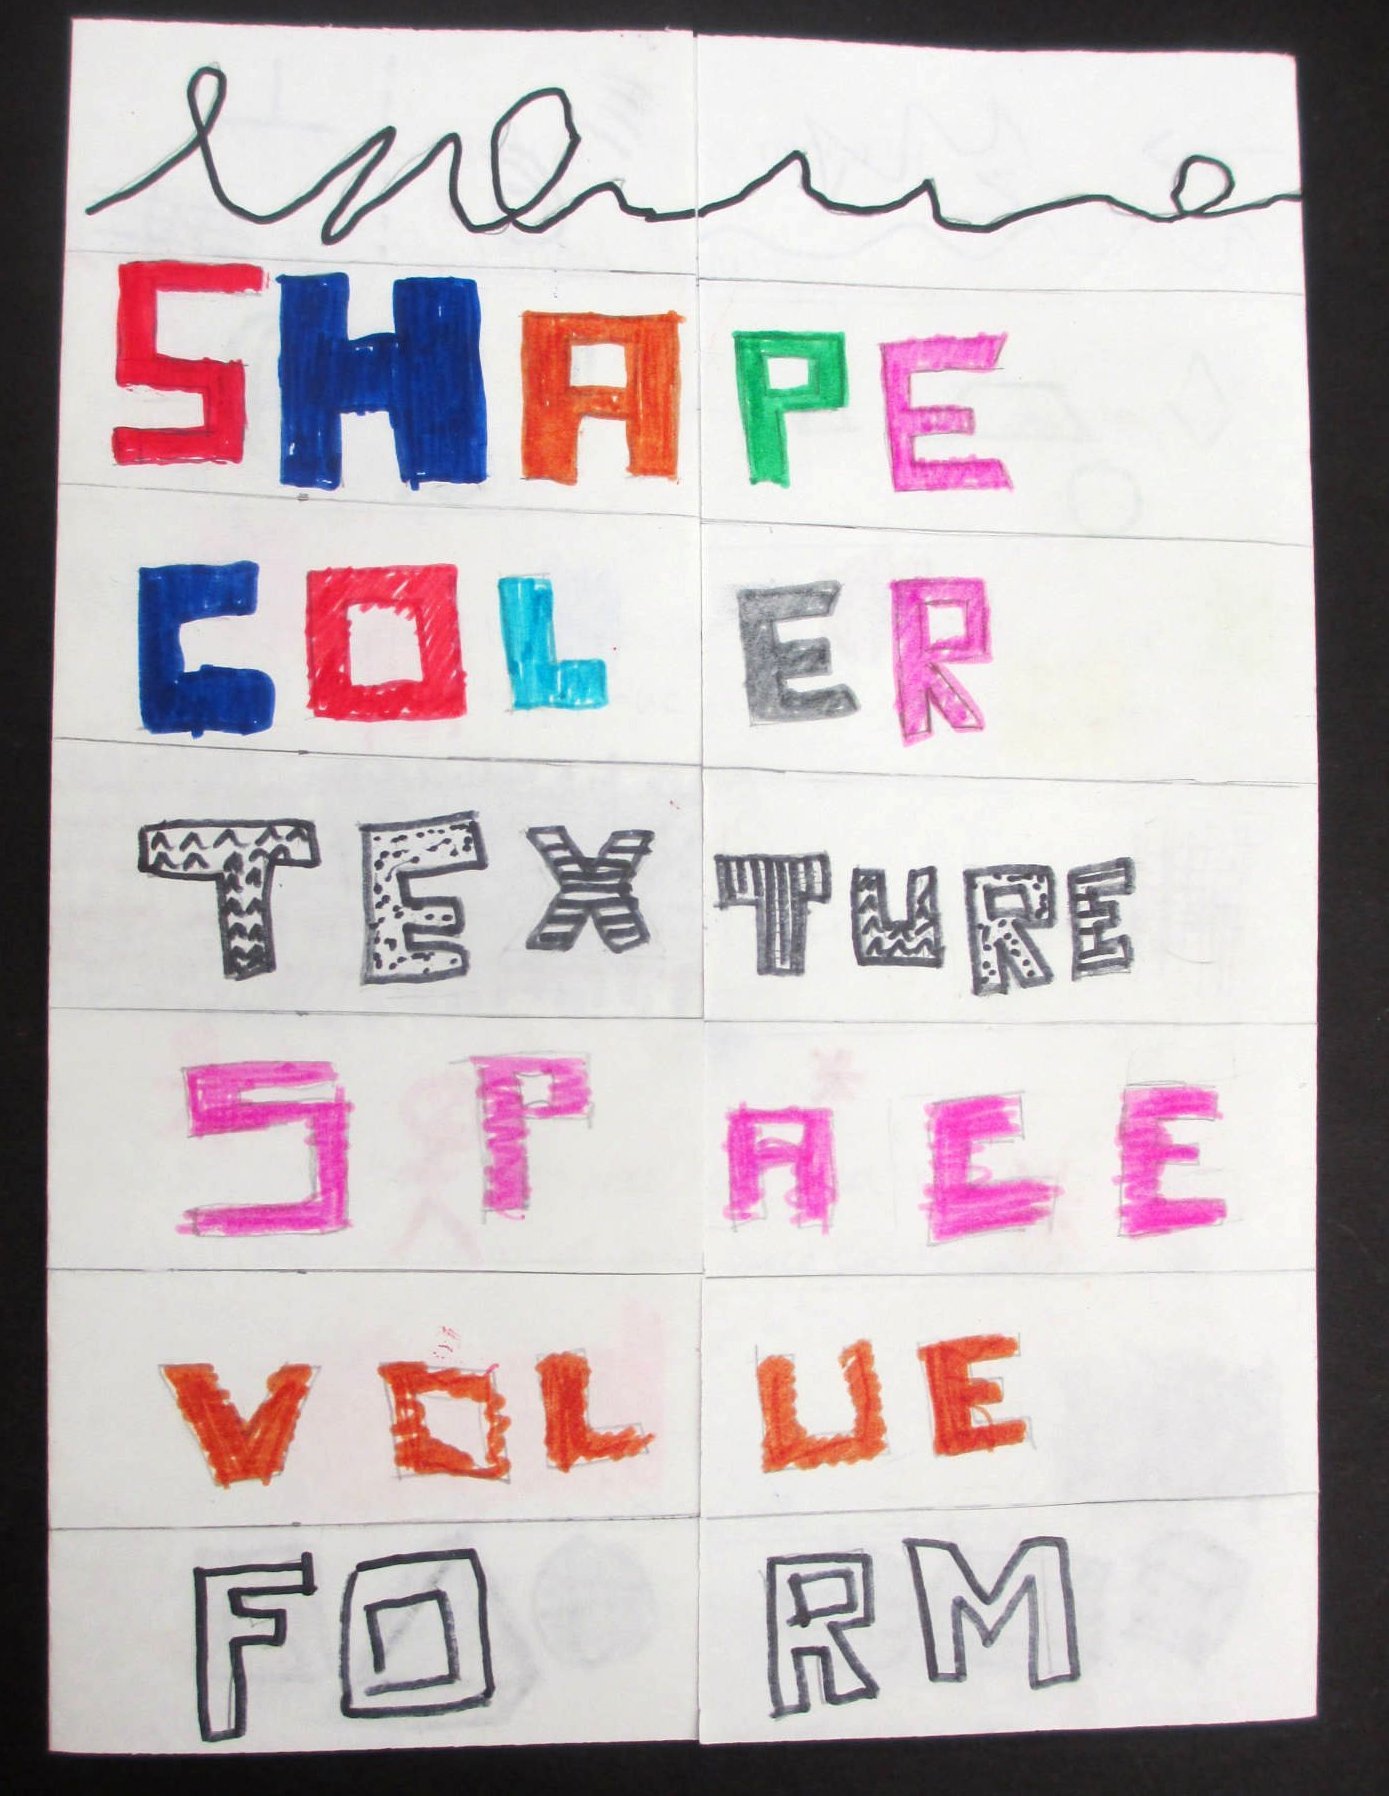 line
SHAPE
COLER
TEXTURE
SPACE
VOLUE
FORM